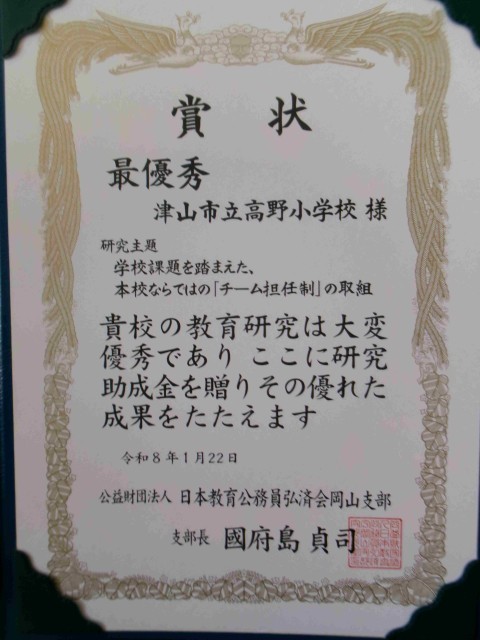 賞状
最優秀
津山市立高野小学校 様
研究主題
学校課題を踏まえた、
本校ならではの「チーム担任制」の取組
貴校の教育研究は大変
優秀であり ここに研究
助成金を贈りその優れた
成果をたたえます
令和8年1月22日
公益財団法人 日本教育公務員弘済会岡山支部
支部長 國府島 貞司